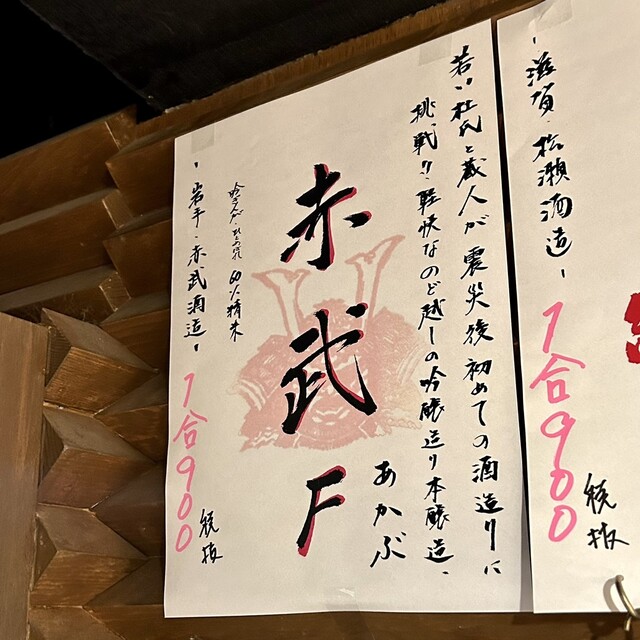 滋賀・松瀬酒造
1合900
税抜
若い杜氏と蔵人が震災後初めての酒造りに
挑戦!!軽快なのど越しの吟醸造り本醸造、
赤武F
あかぶ
吟ぎんが ひとめぼれ 60%精米
-岩手・赤武酒造-
1合900
税抜